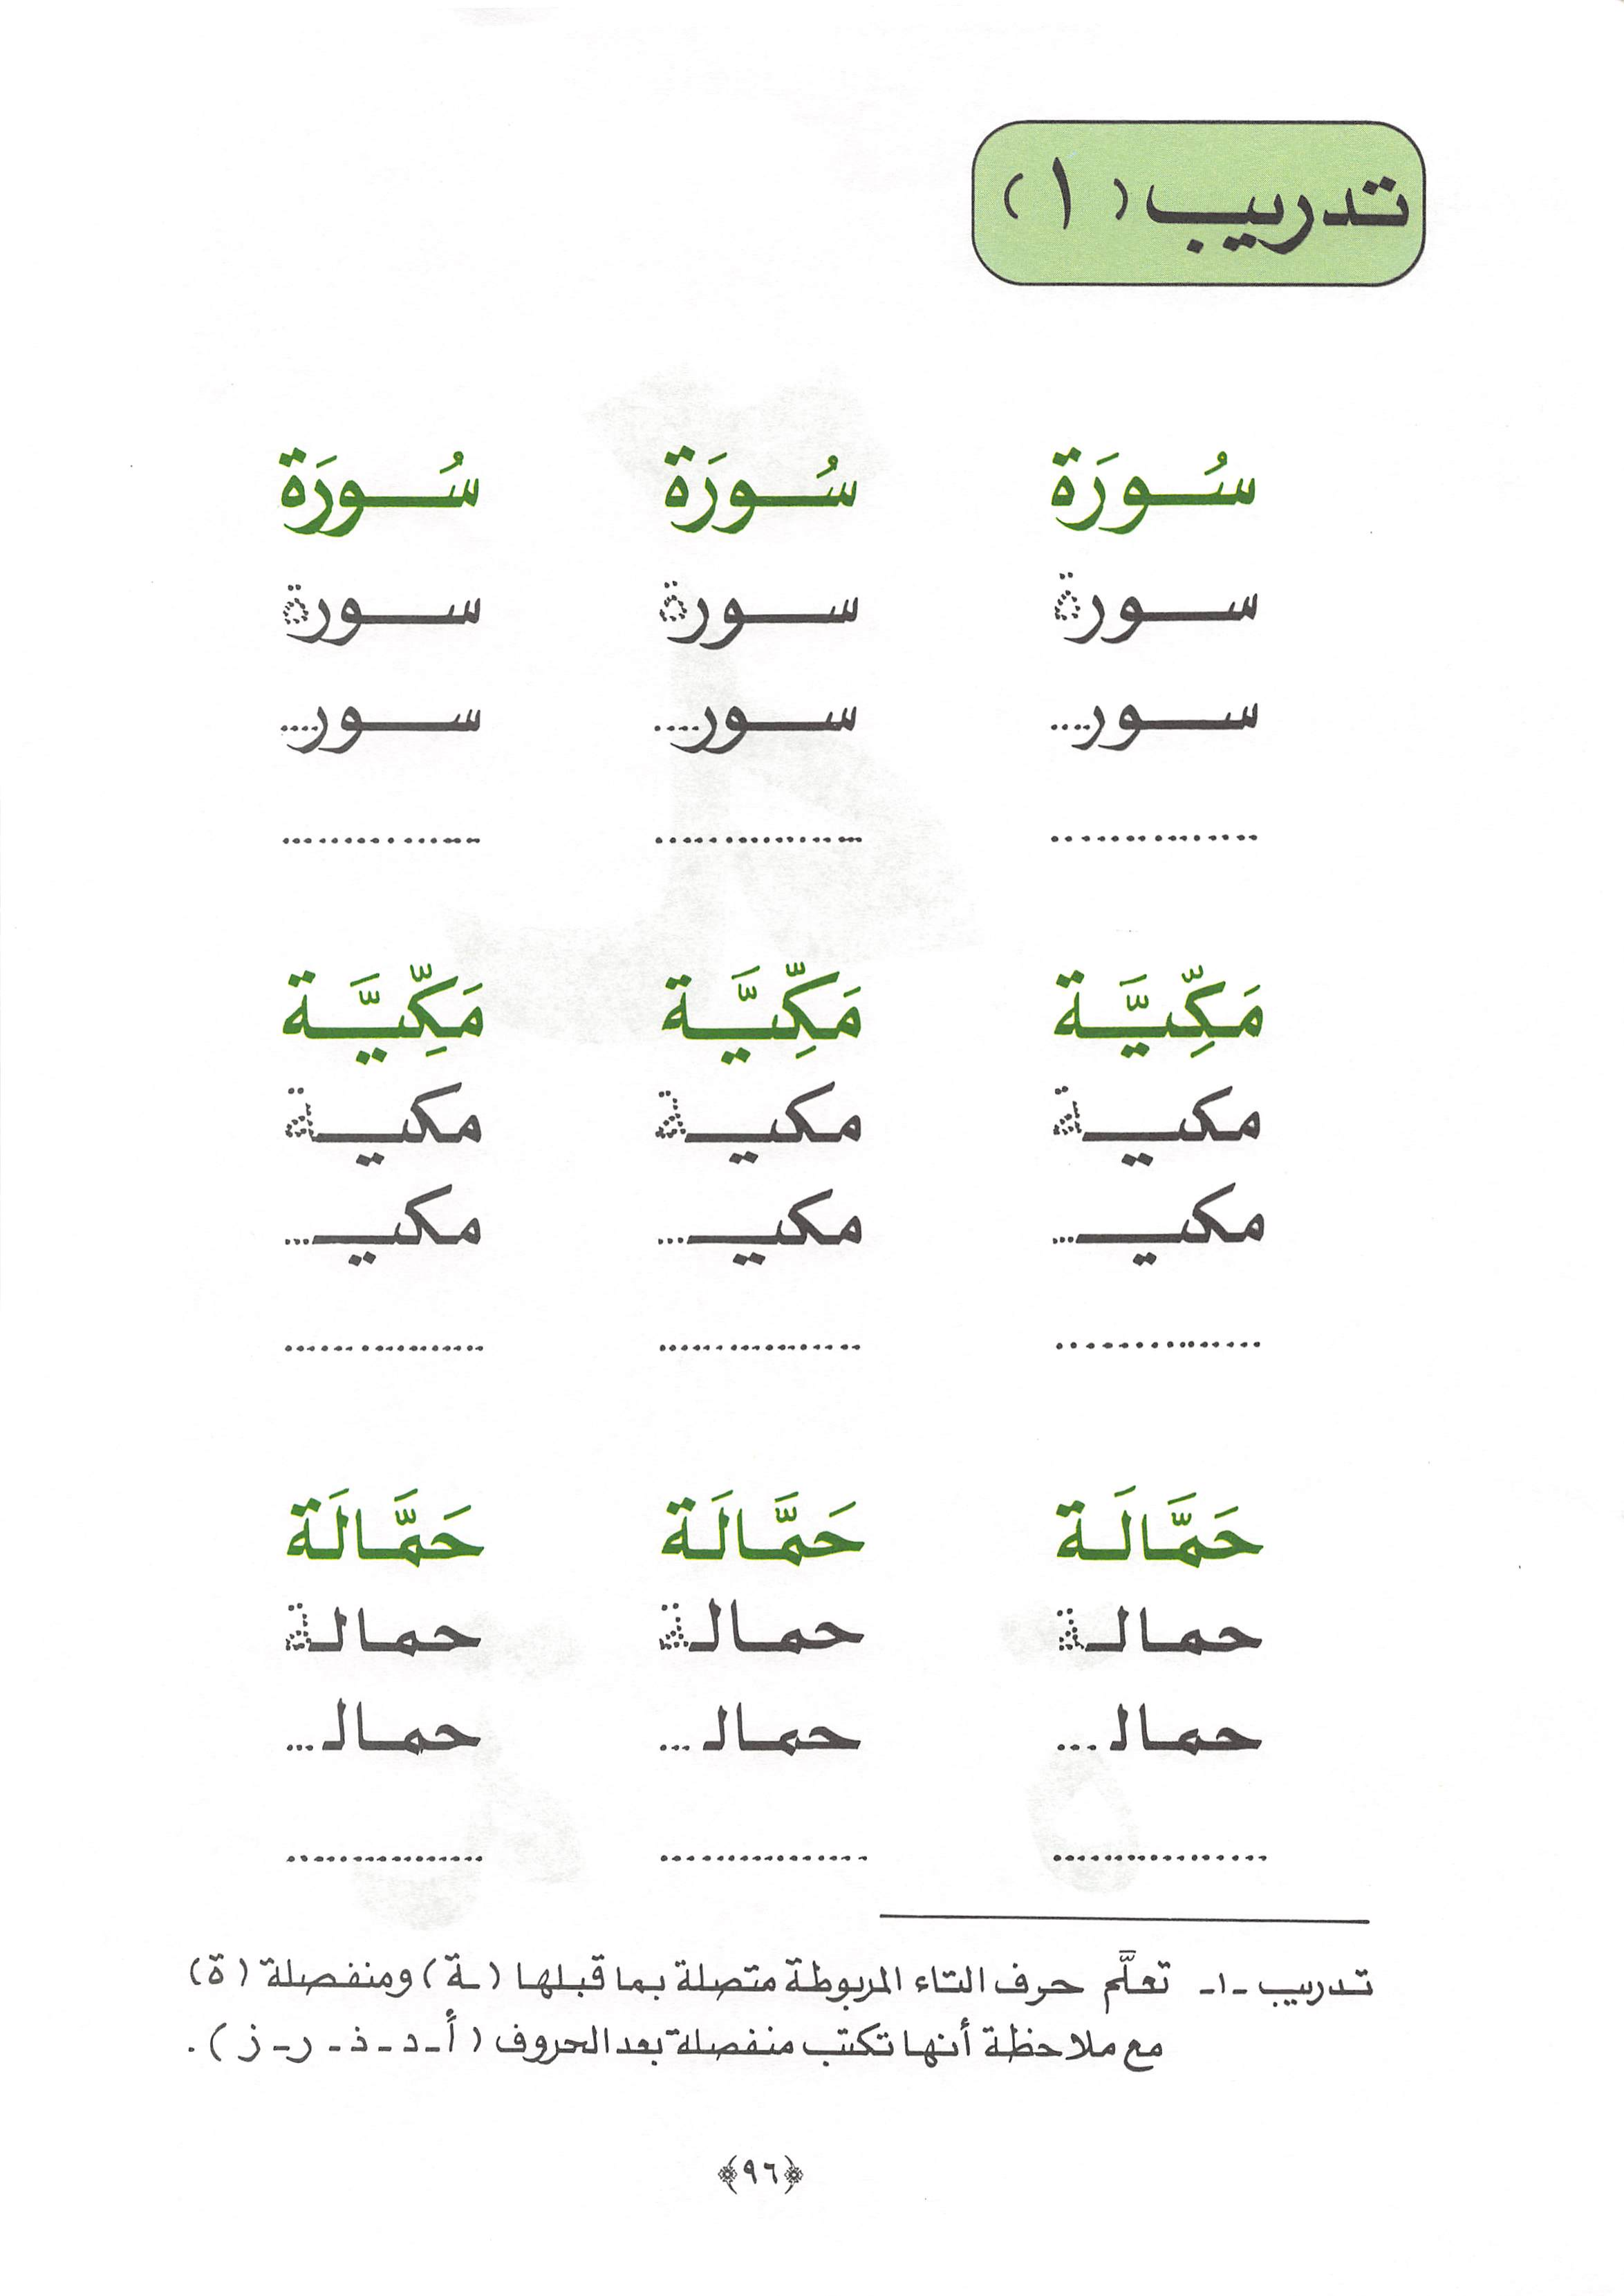 تدريب (١)
سُورَة سُورَة سُورَة
سورة سورة سورة
سور.... سور.... سور....
................ ................ ................
مَكِّيَّة مَكِّيَّة مَكِّيَّة
مكية مكية مكية
مكيـ... مكيـ... مكيـ...
................ ................ ................
حَمَّالَة حَمَّالَة حَمَّالَة
حمالة حمالة حمالة
حمالـ... حمالـ... حمالـ...
................ ................ ................
تدريب -١- تعلَّم حرف التاء المربوطة متصلة بما قبلها (ـة) ومنفصلة (ة)
مع ملاحظة أنها تكتب منفصلة بعد الحروف (أ-د-ذ-ر-ز).
﴿٩٦﴾